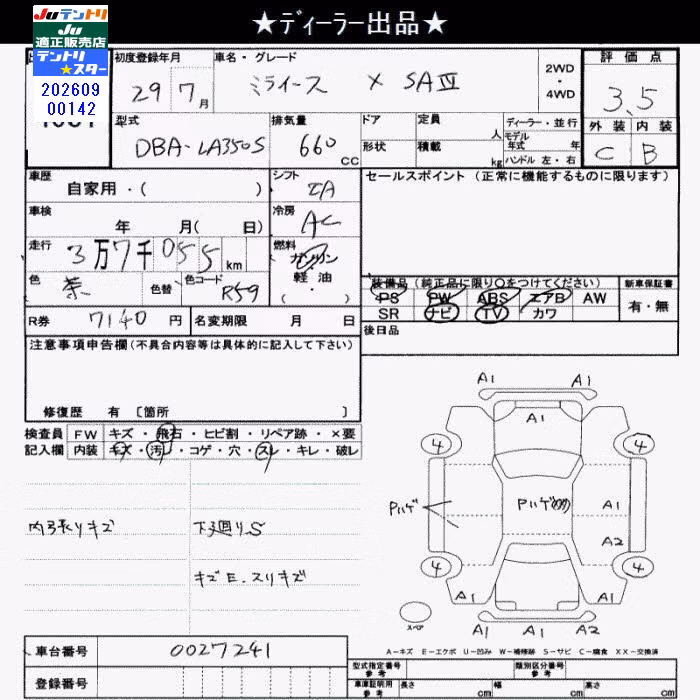 ★ディーラー出品★
Juテントリ
Ju
適正販売店
テントリ
★スター
202609
00142
初度登録年月
29年7月
車名・グレード
ミライース X SAⅢ
2WD
・
4WD
評価点
3.5
外装 内装
C B
型式
DBA-LA350S
排気量
660 CC
ドア
形状
定員 人
積載 kg
ディーラー・並行
モデル
年式 年
ハンドル 左・右
車歴
自家用・( )
シフト
IA
セールスポイント(正常に機能するものに限ります)
車検
年 月( 日)
冷房
AC
走行
3万7千055km
燃料
ガソリン
軽油
( ・ )
色
茶
色替
色コード
R59
装備品(純正品に限り〇をつけてください)
PS PW ABS エアB AW
SR ナビ TV カワ
新車保証書
有・無
R券 7140円
名変期限 月 日
後日品
注意事項申告欄(不具合内容等は具体的に記入して下さい)
修復歴 有 [箇所 ]
検査員
記入欄
FW キズ・飛石・ヒビ割・リペア跡・×要
内装 キズ・汚レ・コゲ・穴・スレ・キレ・破レ
内張りキズ
下廻りS
キズE.スリキズ
A1 A1
A1
4 4
Pハゲ
Pハゲ
A1
A2
4 4
A1 A1
A1 A1 A2
スペア
A-キズ E-エクボ U-凹み W-補修跡 S-サビ C-腐食 XX-交換済
車台番号 0027241
登録番号
型式指定番号
参考
類別区分番号
参考
車庫証明用
参考
長さ cm 幅 cm 高さ cm